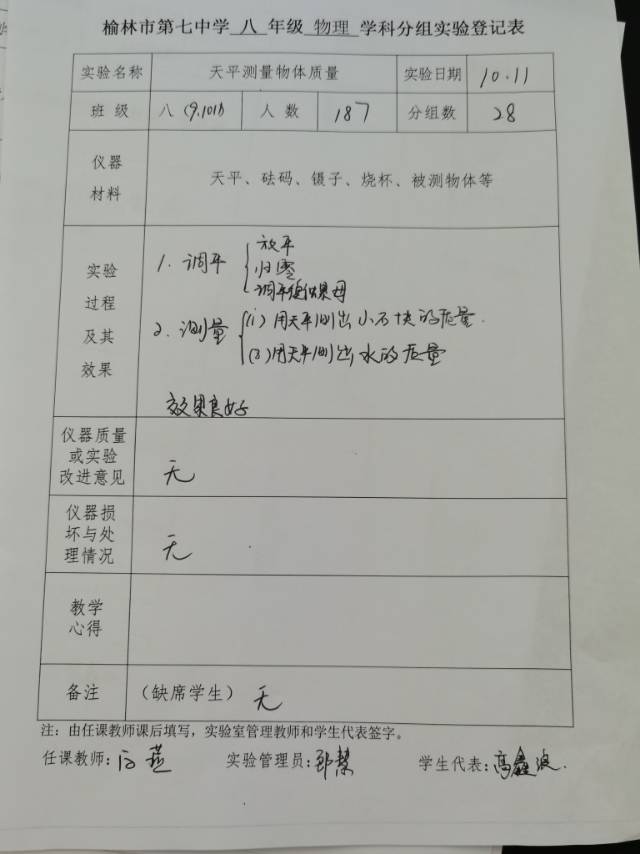 榆林市第七中学 八 年级 物理 学科分组实验登记表
实验名称 天平测量物体质量 实验日期 10.11
班 级 八(9.10.11) 人 数 187 分组数 28
仪器
材料
天平、砝码、镊子、烧杯、被测物体等
实验
过程
及其
效果
1. 调平
放平
归零
调平衡螺母
2. 测量
(1) 用天平测出小石块的质量.
(2) 用天平测出水的质量
效果良好
仪器质量
或实验
改进意见
无
仪器损
坏与处
理情况
无
教学
心得
备注 (缺席学生) 无
注：由任课教师课后填写，实验室管理教师和学生代表签字。
任课教师: 白燕 实验管理员: 郅慧 学生代表: 高鑫波.